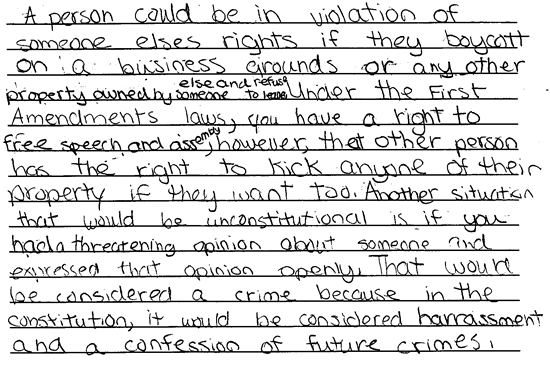 A person could be in violation of
someone elses rights if they boycott
on a business grounds or any other
property owned by someone else and refuse to leave. Under the First
Amendments laws, you have a right to
free speech and assembly, however, thet other person
has the right to kick anyone of their
property if they want too. Another situation
that would be unconstitutional is if you
had a threatening opinion about someone and
expressed that opinion openly. That would
be considered a crime because in the
constitution, it would be considered harrassment
and a confession of future crimes.